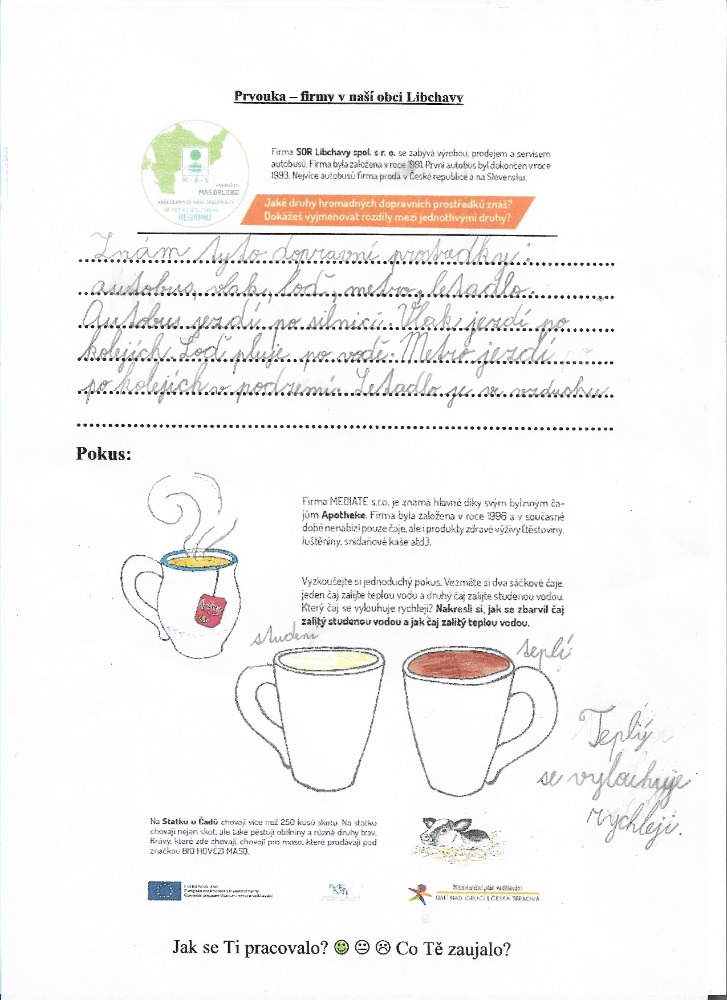 Prvouka – firmy v naší obci Libchavy
Firma SOR Libchavy spol. s r. o. se zabývá výrobou, prodejem a servisem
autobusů. Firma byla založena v roce 1991. První autobus byl dokončen v roce
1993. Nejvíce autobusů firma prodá v České republice a na Slovensku.
M·A·S
MAS ORLICKO
REGIONU
Jaké druhy hromadných dopravních prostředků znáš?
Dokážeš vyjmenovat rozdíly mezi jednotlivými druhy?
Znám tyto dopravní prostředky:
autobus, vlak, loď, metro, letadlo.
Autobus jezdí po silnici. Vlak jezdí po
kolejích. Loď pluje po vodě. Metro jezdí
po kolejích v podzemí. Letadlo je ve vzduchu.
Pokus:
Firma MEDIATE s.r.o. je známá hlavně díky svým bylinným ča-
jům Apotheke. Firma byla založena v roce 1996 a v současné
době nenabízí pouze čaje, ale i produkty zdravé výživy (těstoviny,
luštěniny, snídaňové kaše atd.).
Vyzkoušejte si jednoduchý pokus. Vezměte si dva sáčkové čaje,
jeden čaj zalijte teplou vodu a druhý čaj zalijte studenou vodou.
Který čaj se vylouhuje rychleji? Nakresli si, jak se zbarvil čaj
zalitý studenou vodou a jak čaj zalitý teplou vodou.
studení
teplí
Teplý
se vylouhuje
rychleji.
Na Statku u Čadů chovají více než 250 kusů skotu. Na statku
chovají nejen skot, ale také pěstují obilniny a různé druhy trav.
Krávy, které zde chovají, chovají pro maso, které prodávají pod
značkou BIO HOVĚZÍ MASO.
Místní akční plán vzdělávání
ÚSTÍ NAD ORLICÍ | ČESKÁ TŘEBOVÁ
Jak se Ti pracovalo? Co Tě zaujalo?